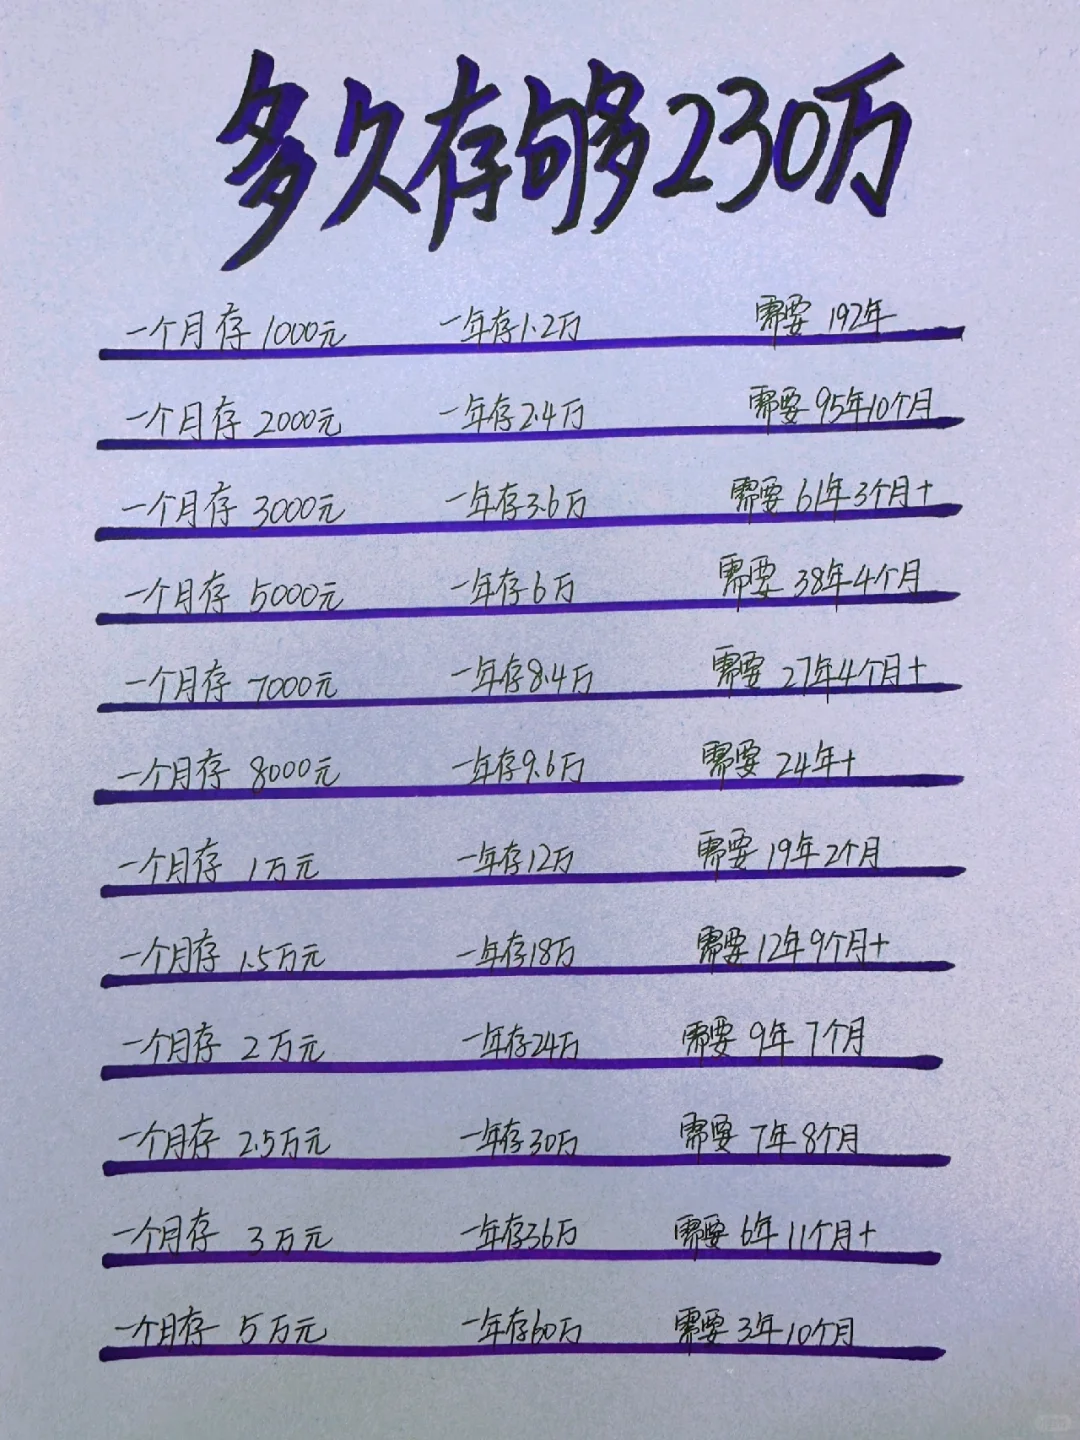 多久存够230万
一个月存 1000元 一年存1.2万 需要 192年
一个月存 2000元 一年存2.4万 需要 95年10个月
一个月存 3000元 一年存3.6万 需要 61年3个月+
一个月存 5000元 一年存6万 需要 38年4个月
一个月存 7000元 一年存8.4万 需要 27年4个月+
一个月存 8000元 一年存9.6万 需要 24年+
一个月存 1万元 一年存12万 需要 19年2个月
一个月存 1.5万元 一年存18万 需要 12年9个月+
一个月存 2万元 一年存24万 需要 9年7个月
一个月存 2.5万元 一年存30万 需要 7年8个月
一个月存 3万元 一年存36万 需要 6年11个月+
一个月存 5万元 一年存60万 需要 3年10个月